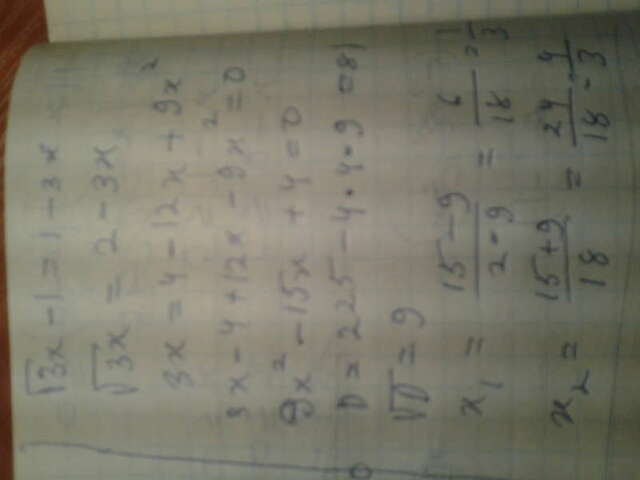 √3x - 1 = 1 - 3x
√3x = 2 - 3x
3x = 4 - 12x + 9x²
3x - 4 + 12x - 9x² = 0
9x² - 15x + 4 = 0
D = 225 - 4·4·9 = 81
√D = 9
x₁ = (15 - 9)/(2·9) = 6/18 = 1/3
x₂ = (15 + 9)/18 = 24/18 = 4/3